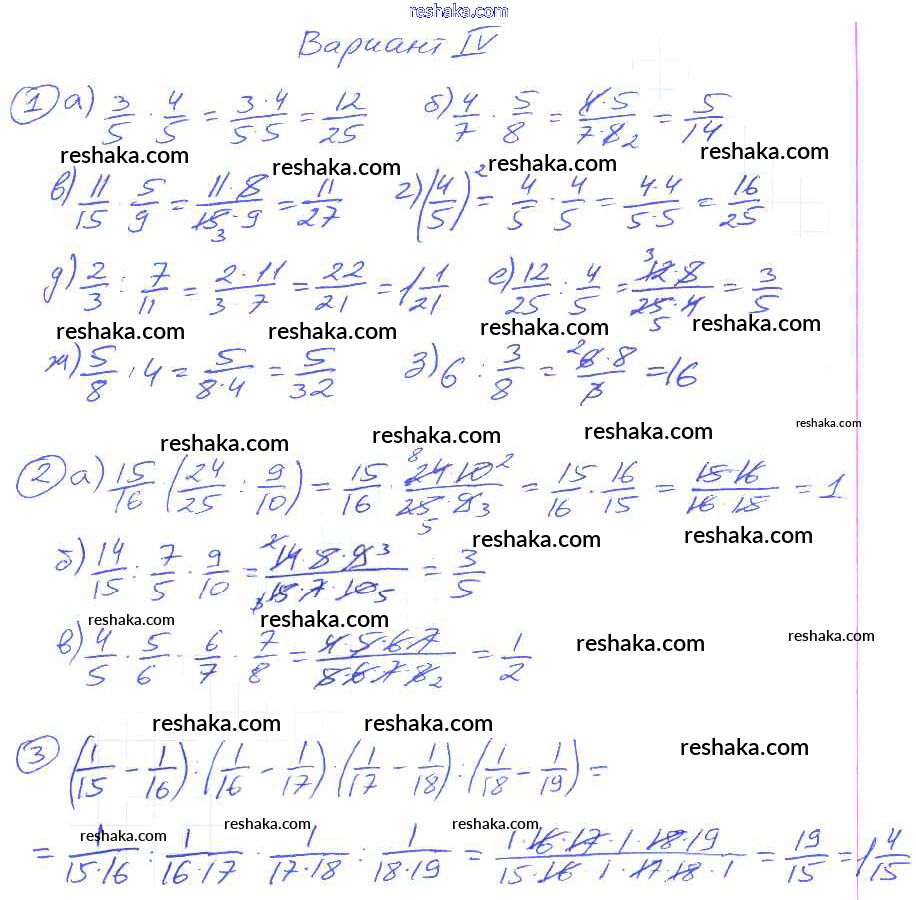 reshaka.com
Вариант IV
① а) 3/5 · 4/5 = 3·4/5·5 = 12/25 б) 4/7 · 5/8 = 4·5/7·8 2 = 5/14
reshaka.com reshaka.com reshaka.com
в) 11/15 · 5/9 = 11·8/15 3·9 = 11/27 г) (4/5)² = 4/5 · 4/5 = 4·4/5·5 = 16/25
д) 2/3 : 7/11 = 2·11/3·7 = 22/21 = 1 1/21 е) 12/25 : 4/5 = 3 12·8/25 5·4 = 3/5
reshaka.com reshaka.com reshaka.com reshaka.com
ж) 5/8 : 4 = 5/8·4 = 5/32 з) 6 : 3/8 = 2 6·8/3 = 16
reshaka.com reshaka.com reshaka.com reshaka.com
② а) 15/16 · (24/25 : 9/10) = 15/16 · 8 24·10 2/25 5·9 3 = 15/16 · 16/15 = 15·16/16·15 = 1
reshaka.com reshaka.com
б) 14/15 : 7/5 · 9/10 = 2 14·8·9 3/3 15·7·10 5 = 3/5
reshaka.com reshaka.com reshaka.com reshaka.com
в) 4/5 · 5/6 · 6/7 · 7/8 = 4·5·6·7/8·6·7·8 2 = 1/2
reshaka.com reshaka.com reshaka.com
③ (1/15 − 1/16) : (1/16 − 1/17) · (1/17 − 1/18) : (1/18 − 1/19) =
reshaka.com reshaka.com reshaka.com
= 1/15·16 : 1/16·17 · 1/17·18 : 1/18·19 = 1·16·17·1·18·19/15·16·1·17·18·1 = 19/15 = 1 4/15